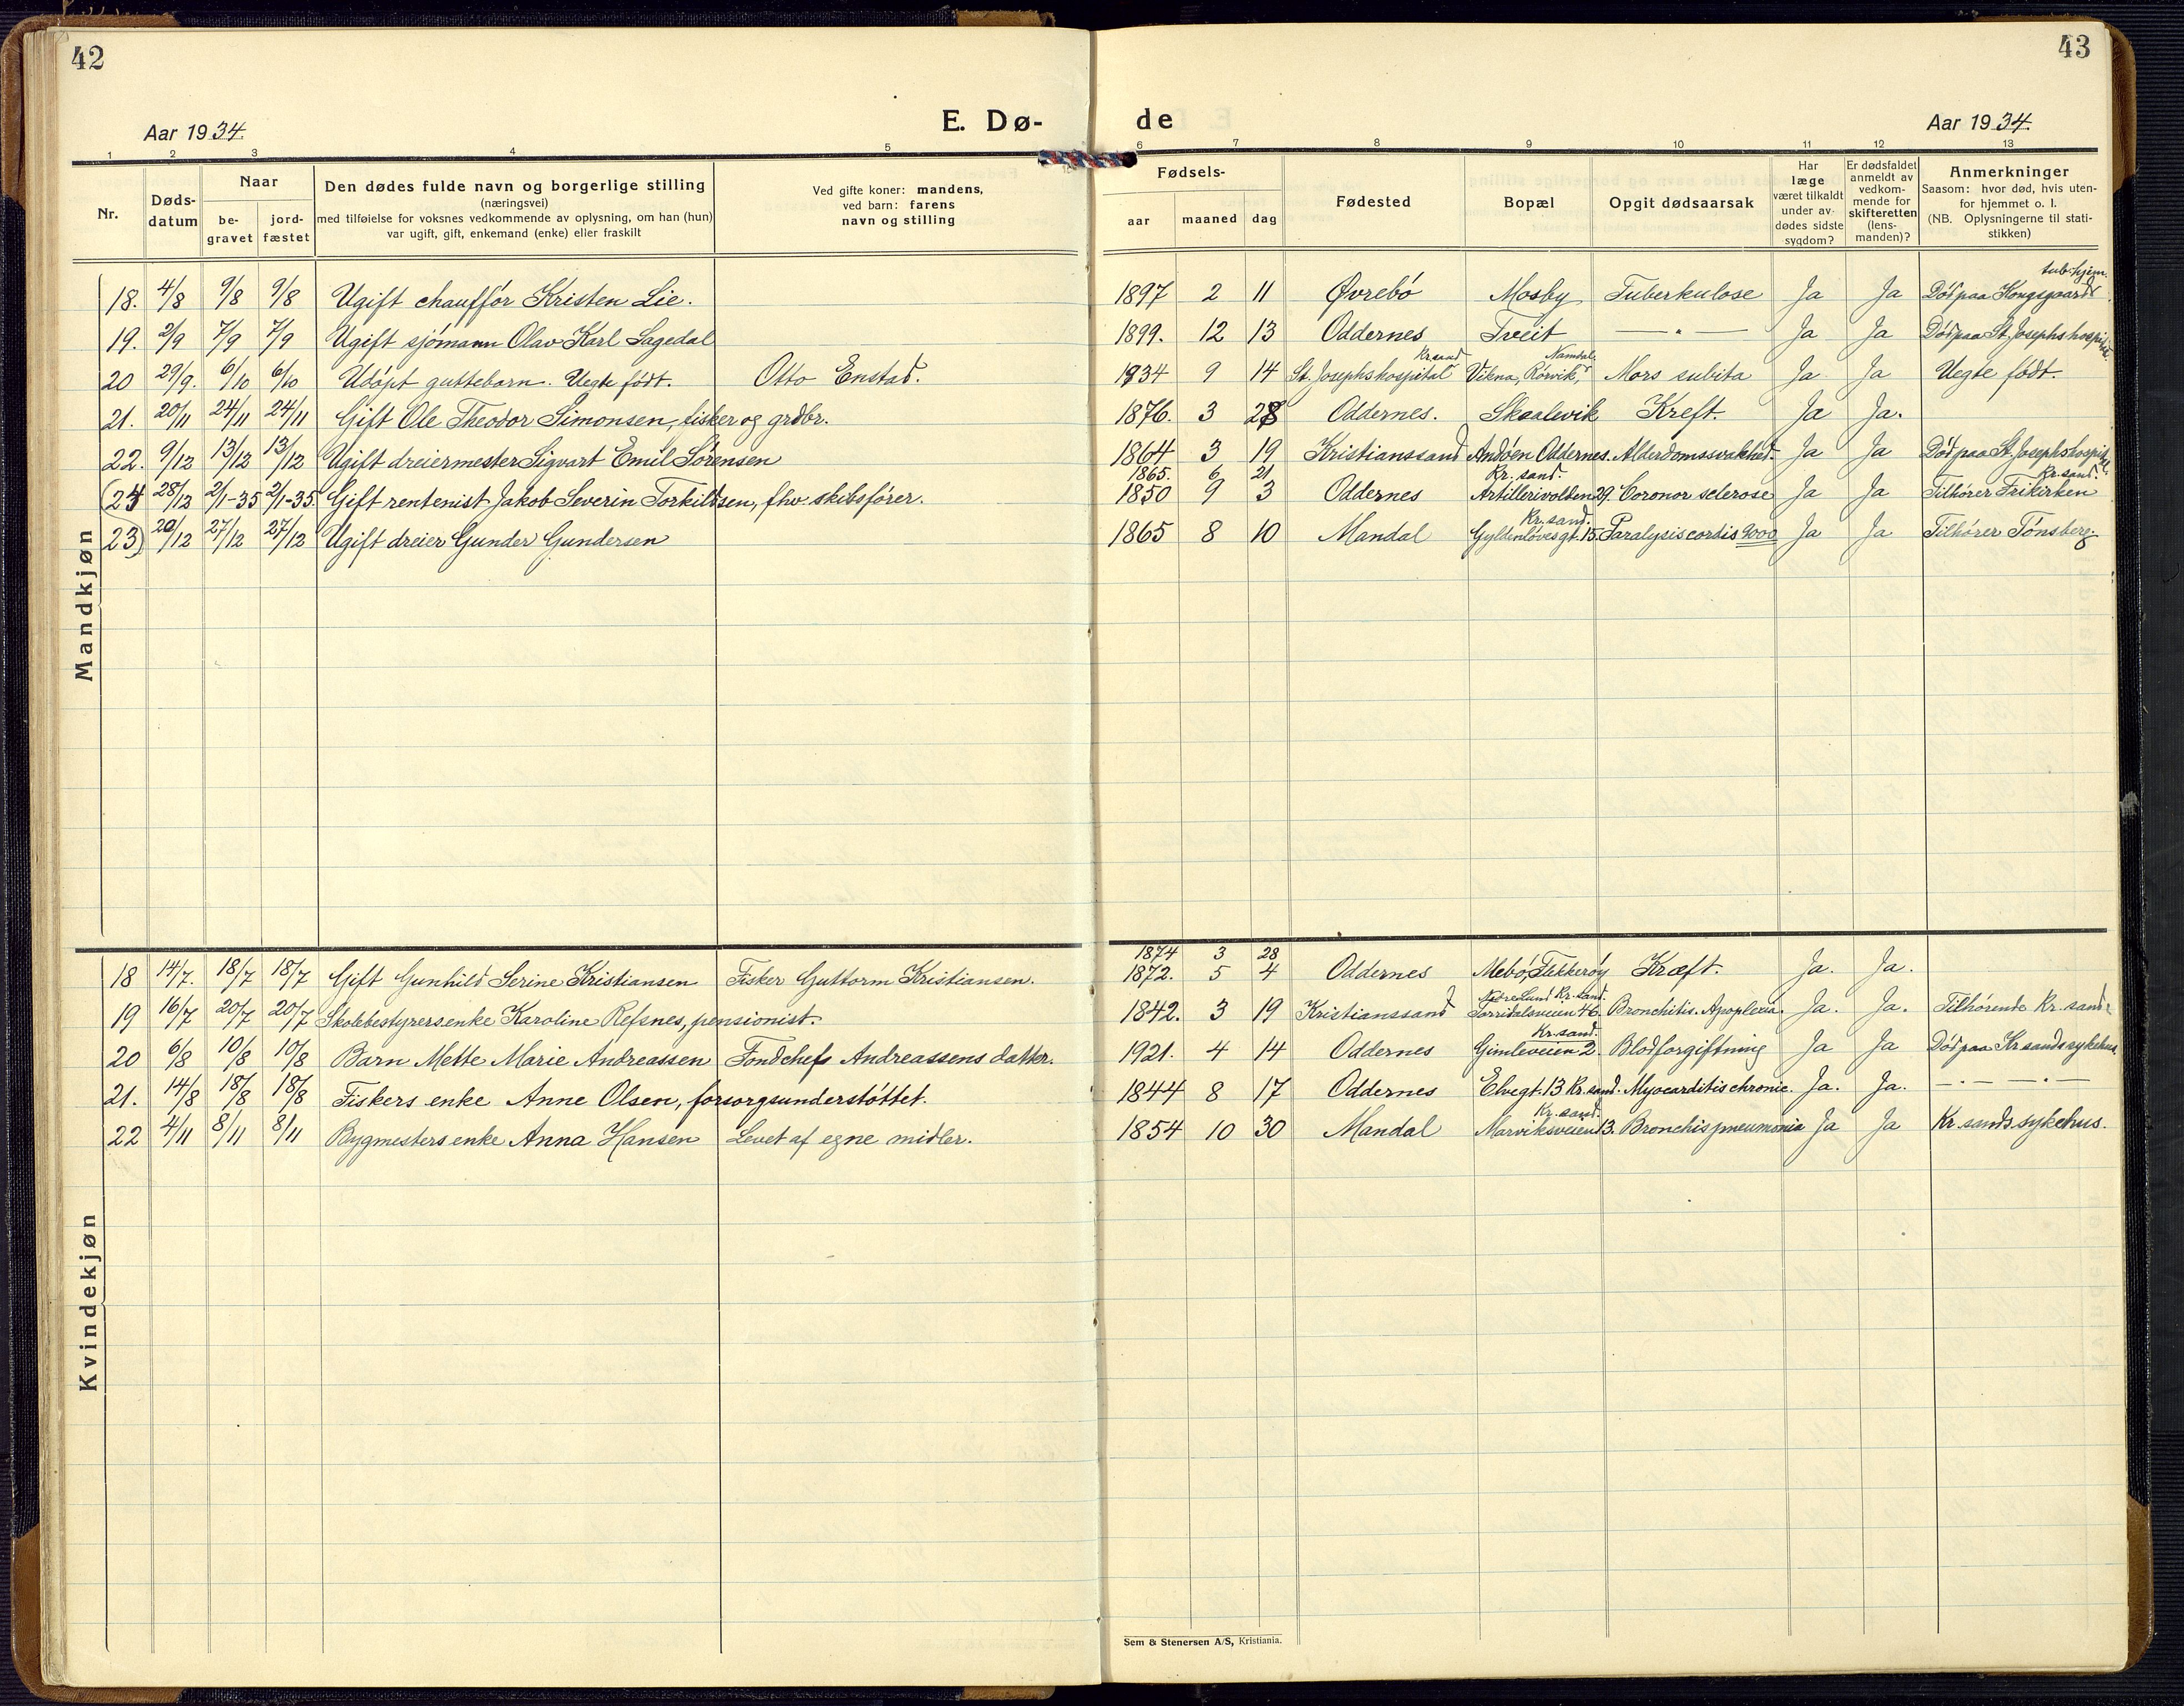 42
43
Aar 1934.
E. Dø-
de
Aar 1934.
1 2 3 4 5 6 7 8 9 10 11 12 13
Nr.
Døds-
datum
Naar
be-
gravet
jord-
fæstet
Den dødes fulde navn og borgerlige stilling
(næringsvei)
med tilføielse for voksnes vedkommende av oplysning, om han (hun)
var ugift, gift, enkemand (enke) eller fraskilt
Ved gifte koner: mandens,
ved barn: farens
navn og stilling
Fødsels-
aar
maaned
dag
Fødested
Bopæl
Opgit dødsaarsak
Har
læge
været tilkaldt
under av-
dødes sidste
sygdom?
Er dødsfaldet
anmeldt av
vedkom-
mende for
skifteretten
(lens-
manden)?
Anmerkninger
Saasom: hvor død, hvis uten-
for hjemmet o. l.
(NB. Oplysningerne til stati-
stikken)
Mandkjøn
tub.hjem.
18. 4/8 9/8 9/8 Ugift chauffør Kristen Lie. 1897 2 11 Øvrebö Mosby Tuberkulose Ja Ja Död paa Kongsgaard
19. 2/9 7/9 7/9 Ugift sjömann Olav Karl Sagedal 1899. 12 13 Oddernes Tveit — " — Ja Ja Död paa St. Josephs hospital.
Kr.sand Namdal
20 29/9. 6/10 6/10 Udöpt guttebarn. Uegte födt. Otto Enstad. 1934 9 14 St. Josephs hospital Vikna, Rörvik, Mors subita Ja Ja Uegte födt.
21. 20/11 24/11 24/11 Gift Ole Theodor Simonsen, fisker og grdbr. 1876. 3 28 Oddernes. Skaalevik Kreft. Ja Ja.
22. 9/12 13/12 13/12 Ugift dreiermester Sigvart Emil Sörensen 1864 3 19 Kristianssand Andöen Oddernes. Alderdomssvakhed. Ja Ja Död paa St. Josephs hospital
1865. 6 21 Kr. sand. Kr. sand.
(24 28/12 2/1-35 2/1-35. Gift rentenist Jakob Severin Torkildsen, fhv. skibsförer. 1850 9 3 Oddernes Artillerivolden 29. Coronor sclerose Ja Ja Tilhörer Frikirken
Kr. sand.
23) 20/12 27/12 27/12 Ugift dreier Gunder Gundersen 1865 8 10 Mandal Gyldenlövesgt. 15. Paralysis cordis Ja Ja Tilhörer Tönsberg.
Kvindekjøn
1874 3 28
18 14/7. 18/7 18/7 Gift Gunhild Serine Kristiansen Fisker Guttorm Kristiansen. 1872. 5 4 Oddernes Mebö, Flekkeröy Kræft. Ja. Ja.
Lund Kr. sand.
19 16/7 20/7 20/7 Skolebestyrersenke Karoline Refsnes, pensionist. 1842. 3 19 Kristianssand Torridalsveien 46. Bronchitis. Apoplexia. Ja. Ja. Tilhørende Kr. sand
Kr. sand.
20 6/8 10/8 10/8 Barn Mette Marie Andreassen Fondchefs Andreassens datter. 1921. 4 14 Oddernes Gimleveien 2. Blodforgiftning Ja Ja Död paa Kr sands sykehus.
21. 14/8 18/8 18/8 Fiskers enke Anne Olsen, forsorgsunderstöttet. 1844 8 17 Oddernes Elvegt. 13 Kr. sand. Myocarditis chronic. Ja. Ja. — " — " —
Kr. sand.
22 4/11 8/11 8/11 Bygmesters enke Anna Hansen Levet af egne midler. 1854 10 30 Mandal Marviksveien 13. Bronchispneumonia Ja Ja Kr. sands. sykehus.
Sem & Stenersen A/S, Kristiania.